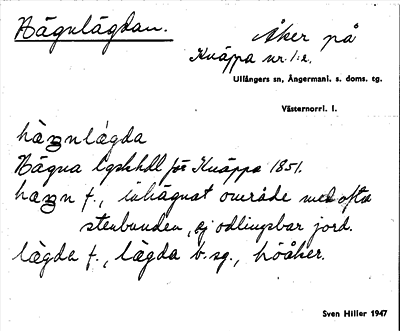 Hägnlägdan.
Åker på
Knäppa nr. 1:2.
Ullångers sn, Ångermanl. s. doms. tg.
Västernorrl. l.
hàʒnlǻgda
Hägna lgshhdl för Knäppa 1851.
haʒn f., inhägnat område med ofta
stenbunden, ej odlingsbar jord.
lǻgda f., lägda b. sg., höåker.
Sven Hiller 1947